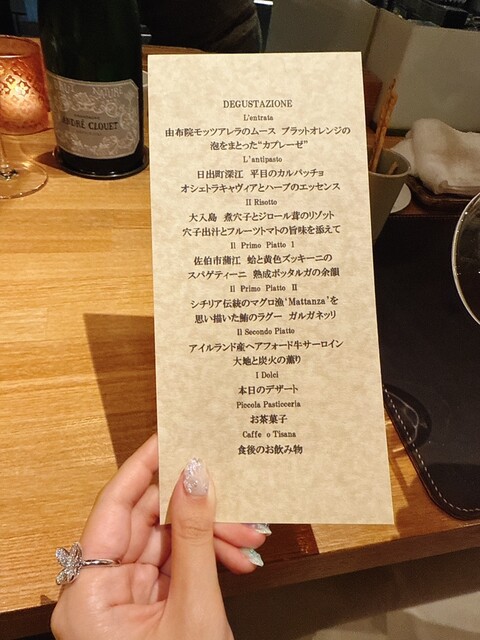 BRUT NATURE
ANDRÉ CLOUET
DEGUSTAZIONE
L'entrata
由布院モッツアレラのムース ブラットオレンジの
泡をまとった“カプレーゼ”
L'antipasto
日出町深江 平目のカルパッチョ
オシェトラキャヴィアとハーブのエッセンス
Il Risotto
大入島 煮穴子とジロール茸のリゾット
穴子出汁とフルーツトマトの旨味を添えて
Il Primo Piatto I
佐伯市蒲江 蛤と黄色ズッキーニの
スパゲティーニ 熟成ボッタルガの余韻
Il Primo Piatto II
シチリア伝統のマグロ漁‘Mattanza’を
思い描いた鮪のラグー ガルガネッリ
Il Secondo Piatto
アイルランド産ヘアフォード牛サーロイン
大地と炭火の薫り
I Dolci
本日のデザート
Piccola Pasticceria
お茶菓子
Caffe o Tisana
食後のお飲み物